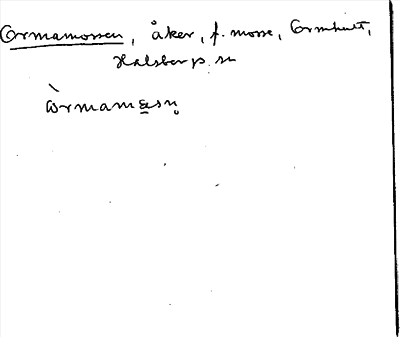 Ormamossen, åker, f. mosse, Ormhult,
Halsberp. sn
òrmamɷsn̥